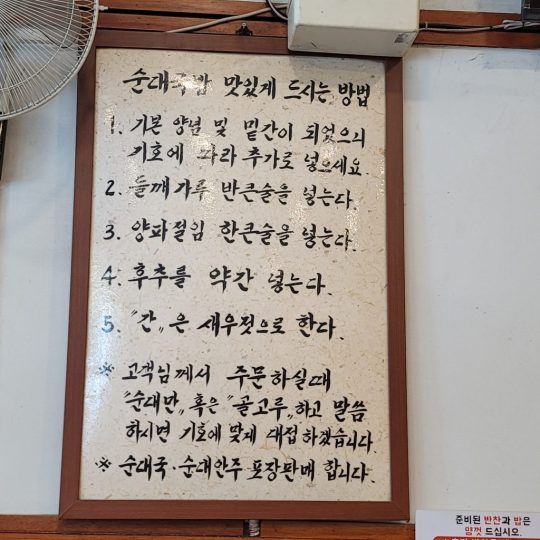 순대국밥 맛있게 드시는 방법
1. 기본 양념 및 밑간이 되었으니
기호에 따라 추가로 넣으세요.
2. 들깨가루 반큰술을 넣는다.
3. 양파절임 한큰술을 넣는다.
4. 후추를 약간 넣는다.
5. "간"은 새우젓으로 한다.
※ 고객님께서 주문하실때
"순대만" 혹은 "골고루"하고 말씀
하시면 기호에 맞게 대접하겠습니다.
※ 순대국·순대안주 포장판매 합니다.
준비된 반찬과 밥은
맘껏 드십시오.